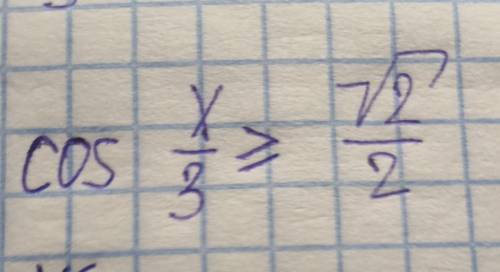 cos x/3 ≥ √2/2